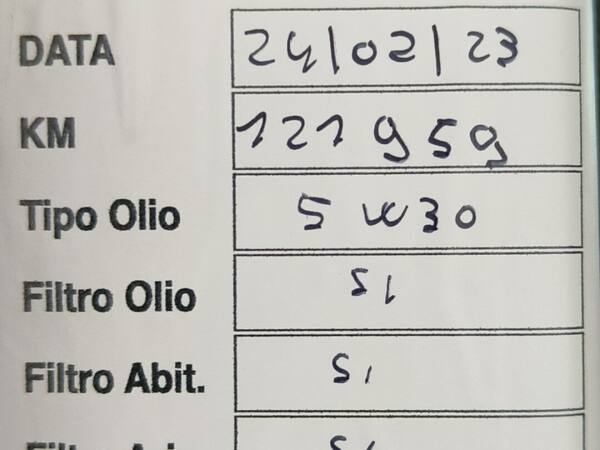 DATA 24/02/23
KM 121959
Tipo Olio 5W30
Filtro Olio SI
Filtro Abit. SI